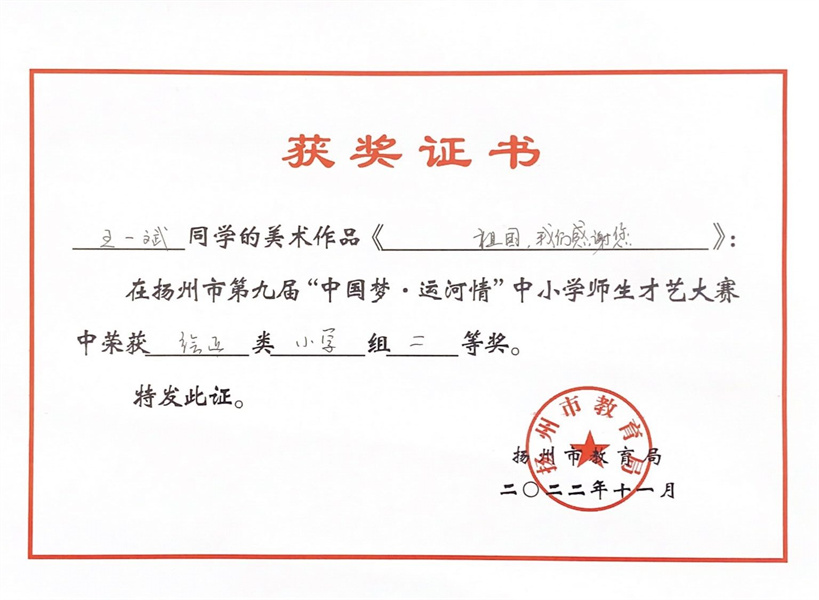 获奖证书
王一斌同学的美术作品《祖国,我们感谢您》:
在扬州市第九届“中国梦·运河情”中小学师生才艺大赛
中荣获绘画类小学组二等奖。
特发此证。
扬州市教育局
扬州市教育局
二〇二二年十一月